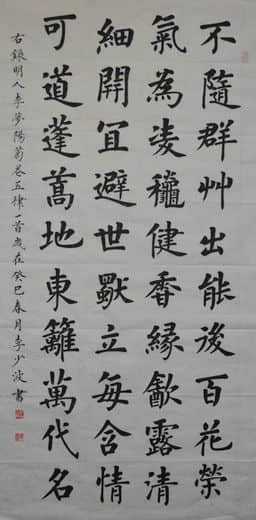 不隨群艸出能後百花榮
氣為凌穐健香緣㱃露清
細開冝避世獸立每含情
可道蓬蒿地東籬萬代名
右錄明人李夢陽菊五律一首歲在癸巳春月李少波書